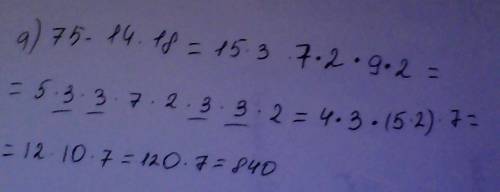 а) 75 · 14 · 18 = 15 · 3 · 7 · 2 · 9 · 2 =
= 5 · 3 · 3 · 7 · 2 · 3 · 3 · 2 = 4 · 3 · (5 · 2) · 7 =
= 12 · 10 · 7 = 120 · 7 = 840